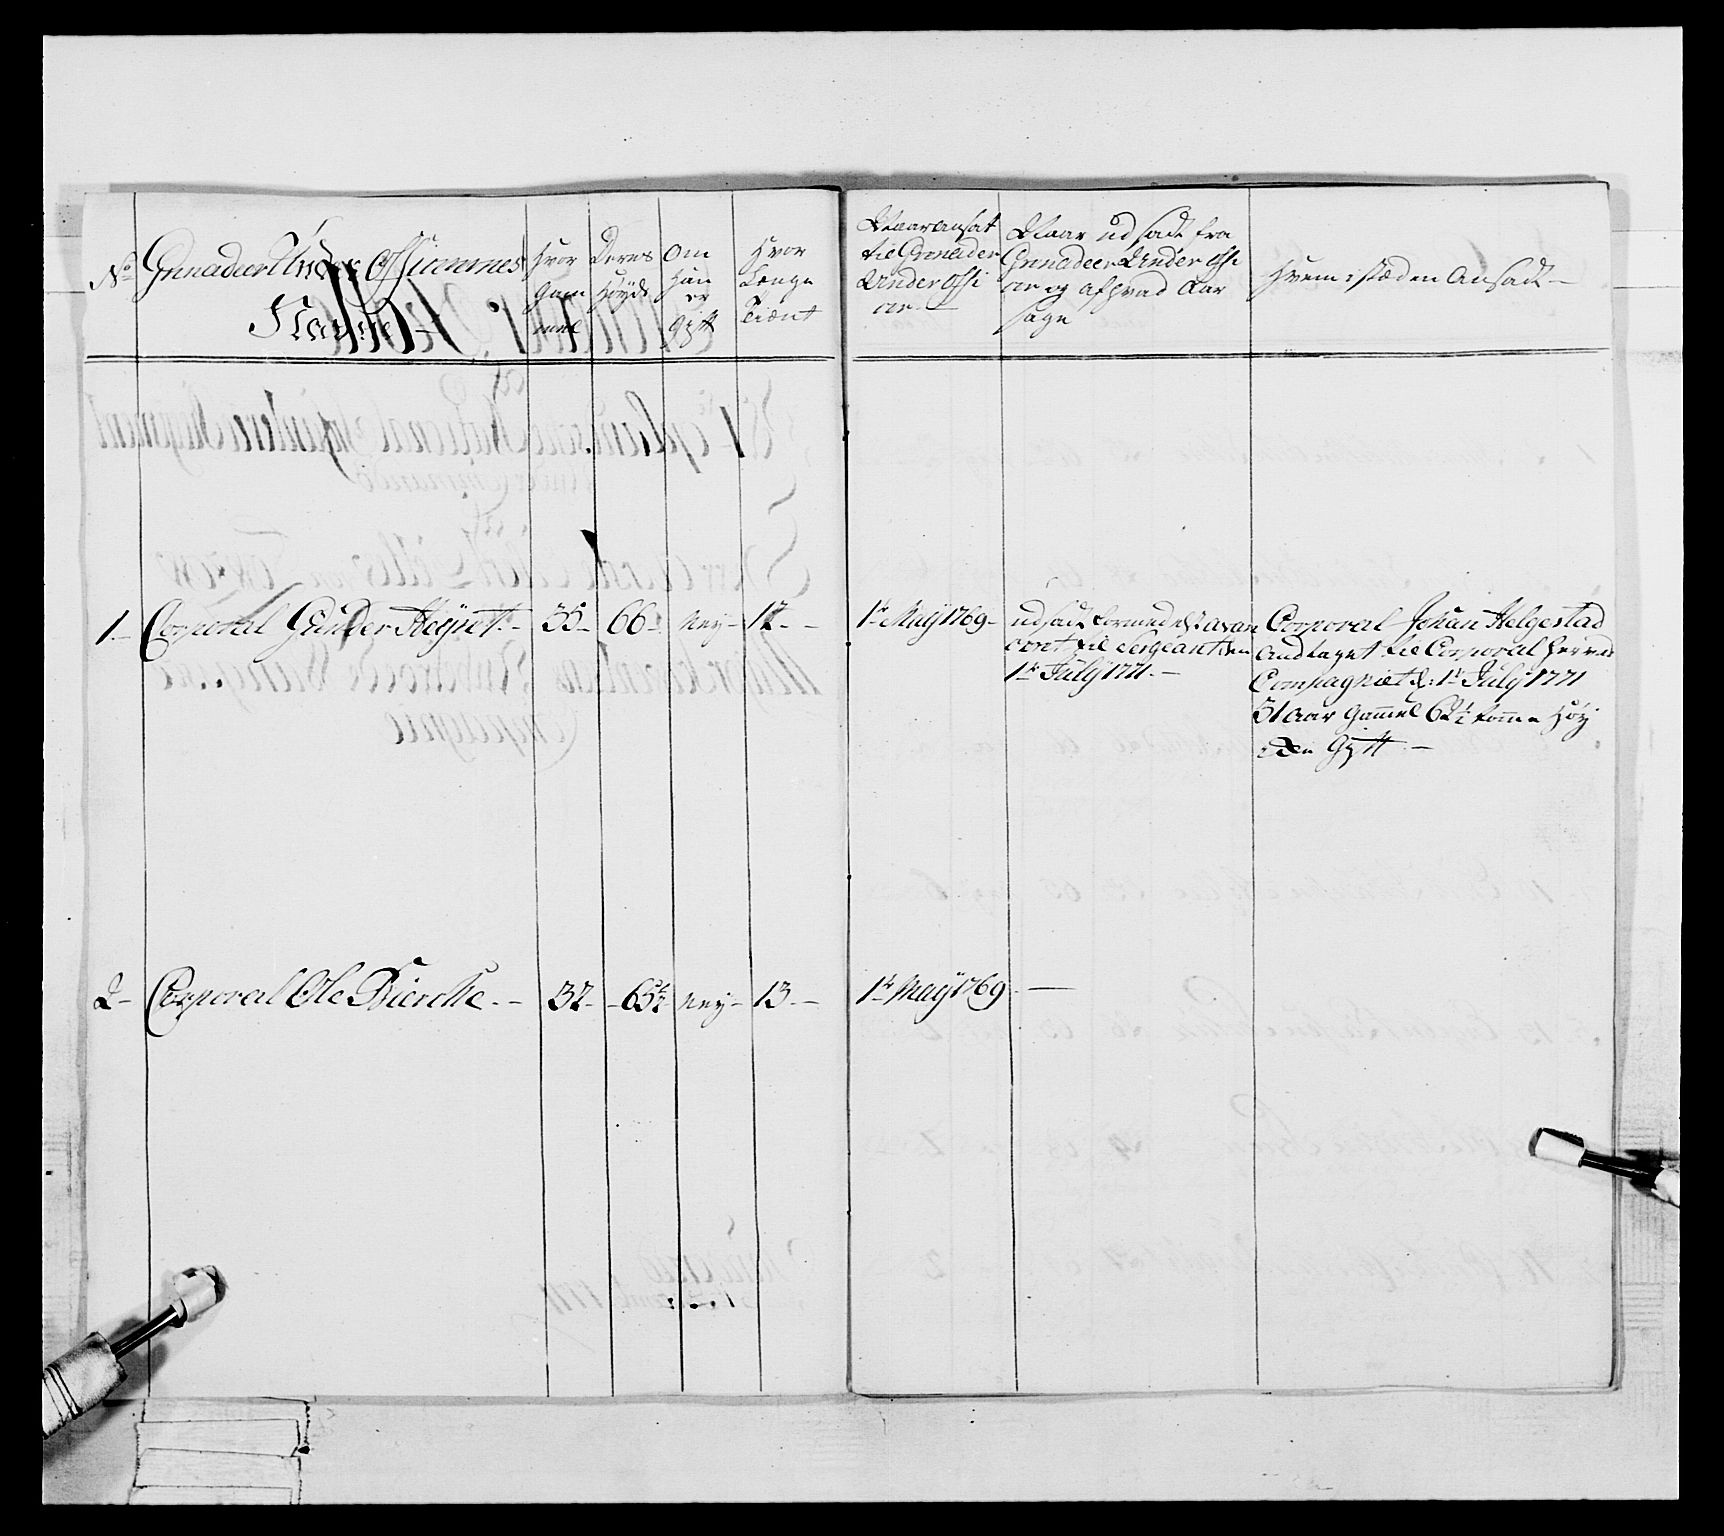 No
Grenadeer Under Officerernes
Nafne
Hvor
Gam
mel
Deres
Høyde
Om
Han
er
Gift
Hvor
Længe
Tient
Naar ansat
til Grenadeer
Under Offi
cer
Naar udsadt fra
Grenadeer Under Offi
cer og af hvad Aar
sage
Hvem i stæden Ansadt
1. Corporal Gunder Heyjet. 35 66 Ney 12
1te Maÿ 1769
udsadt formedelst avan
cert til Sergeant den
1te Julÿ 1771.
Corporal Johan Helgestad
andtaget til Corporal herved
Compagniet d: 1te Julÿ 1771
51 aar Gammel 62½ tomme Høy
Gift
2 Corporal Ole Bierche 37 65½ Ney 13
1te Maÿ 1769